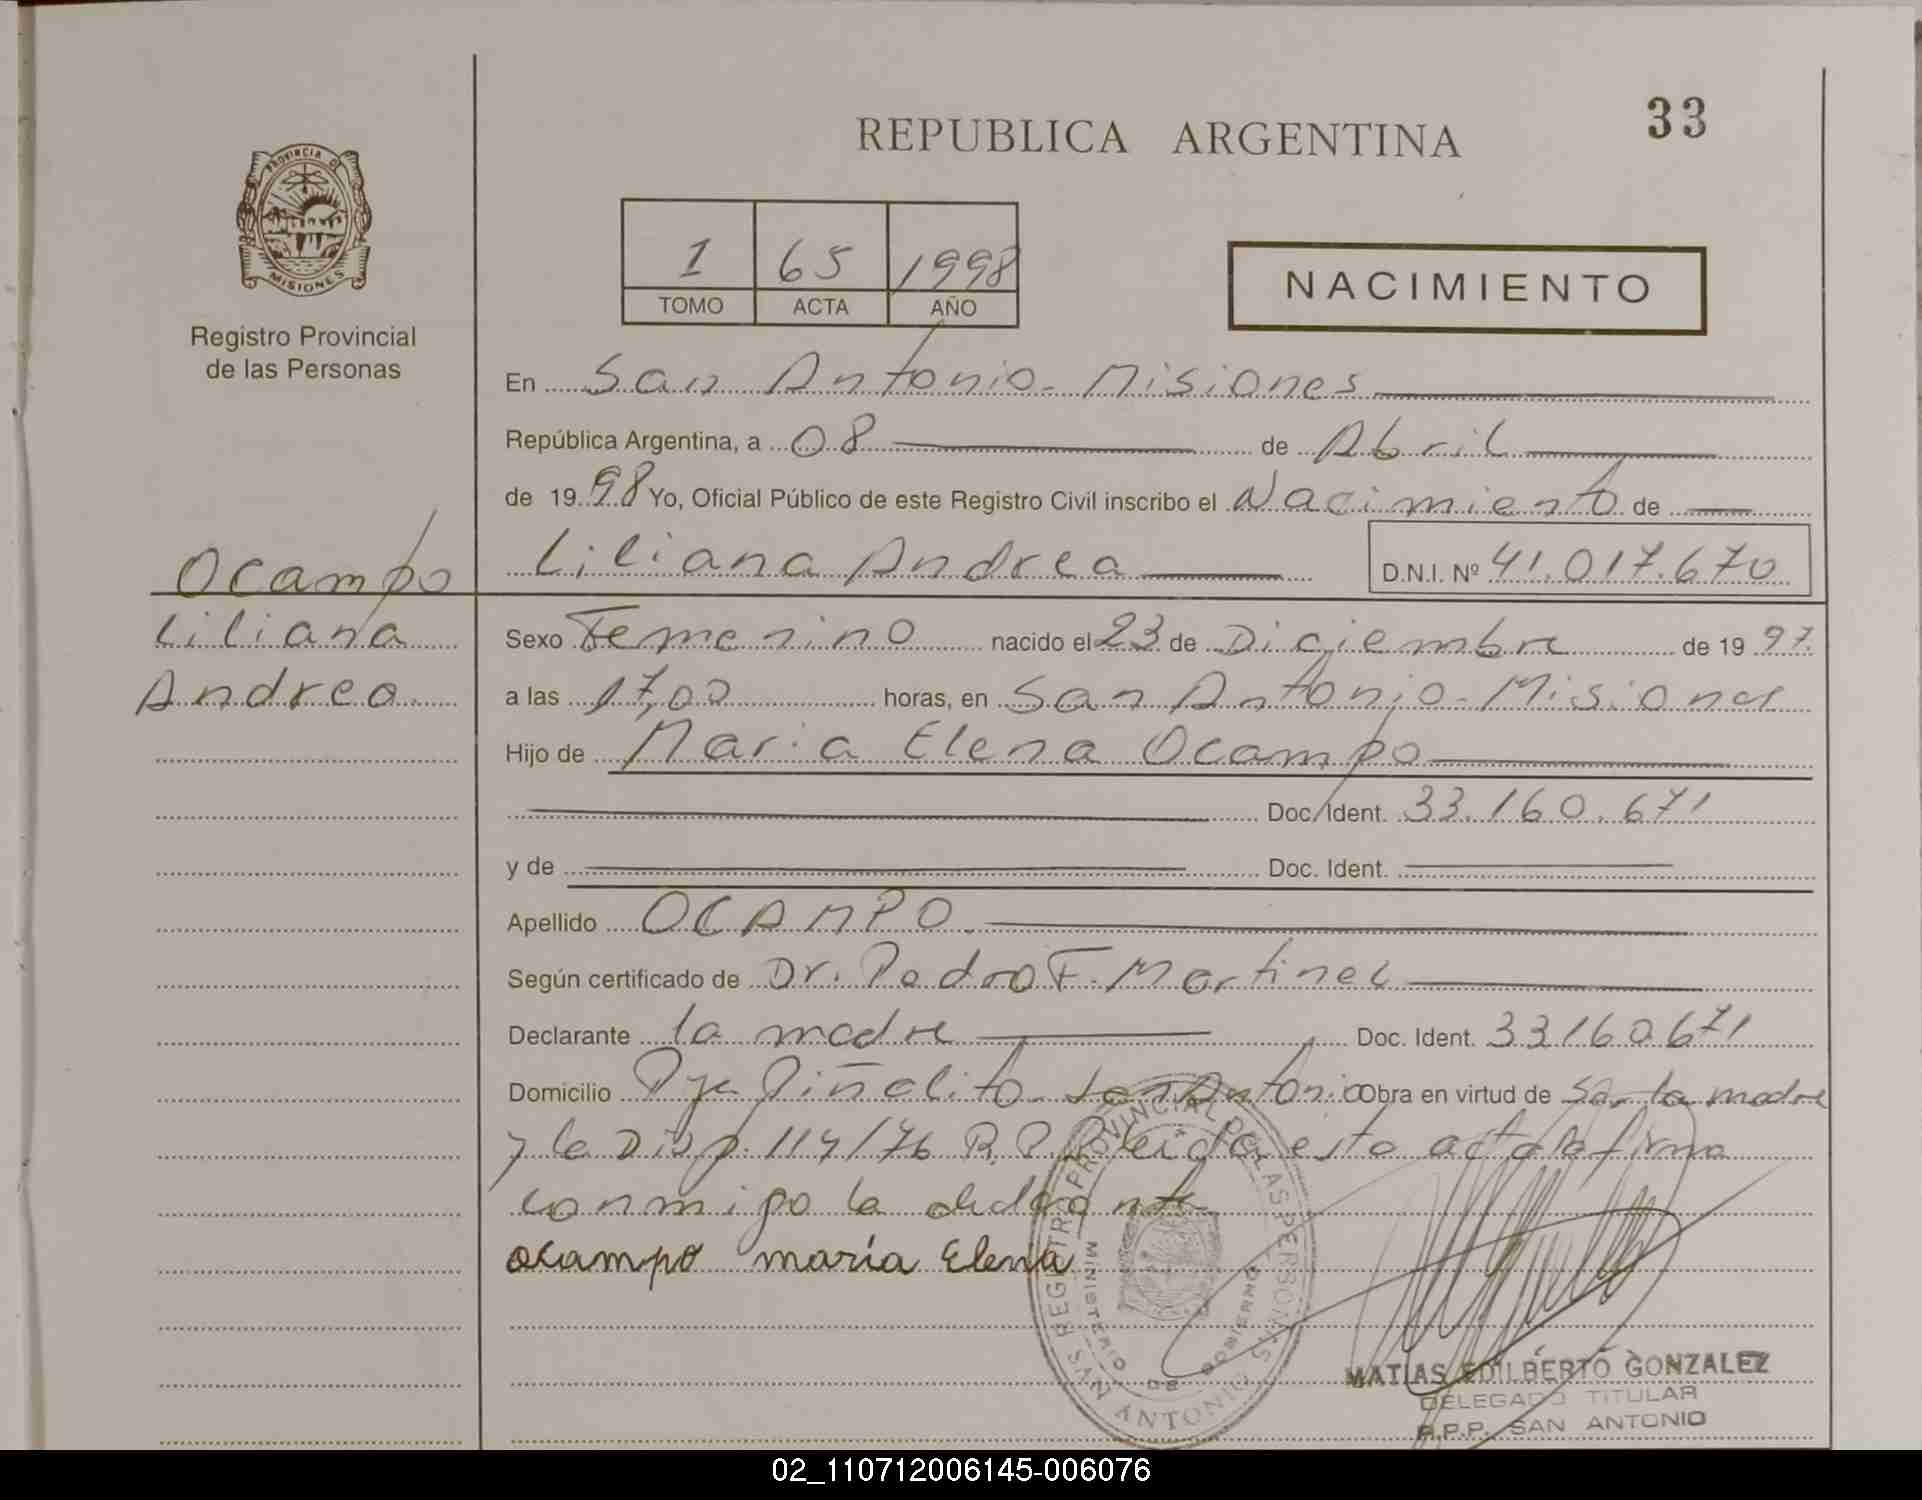 33
REPUBLICA ARGENTINA
PROVINCIA DE
MISIONES
Registro Provincial
de las Personas
1 65 1998
TOMO ACTA AÑO
NACIMIENTO
En San Antonio - Misiones
República Argentina, a 08 de Abril
de 1998 Yo, Oficial Público de este Registro Civil inscribo el Nacimiento de
Liliana Andrea D.N.I. Nº 41.017.670
Ocampo
Liliana
Andrea
Sexo Femenino nacido el 23 de Diciembre de 1997.
a las 17,00 horas, en San Antonio - Misiones
Hijo de Maria Elena Ocampo
Doc. Ident. 33.160.671
y de Doc. Ident.
Apellido OCAMPO.
Según certificado de Dr. Pedro F. Martinez
Declarante la madre Doc. Ident. 33160671
Domicilio Pje Piñalito - San Antonio Obra en virtud de ser la madre
y la Disp. 114/76 R.P.P. Leida esta acta la firma
conmigo la declarante
ocampo maría Elena
REGISTRO PROVINCIAL DE LAS PERSONAS
MINISTERIO DE GOBIERNO
SAN ANTONIO
MATIAS EDILBERTO GONZALEZ
DELEGADO TITULAR
R.P.P. SAN ANTONIO
02_110712006145-006076